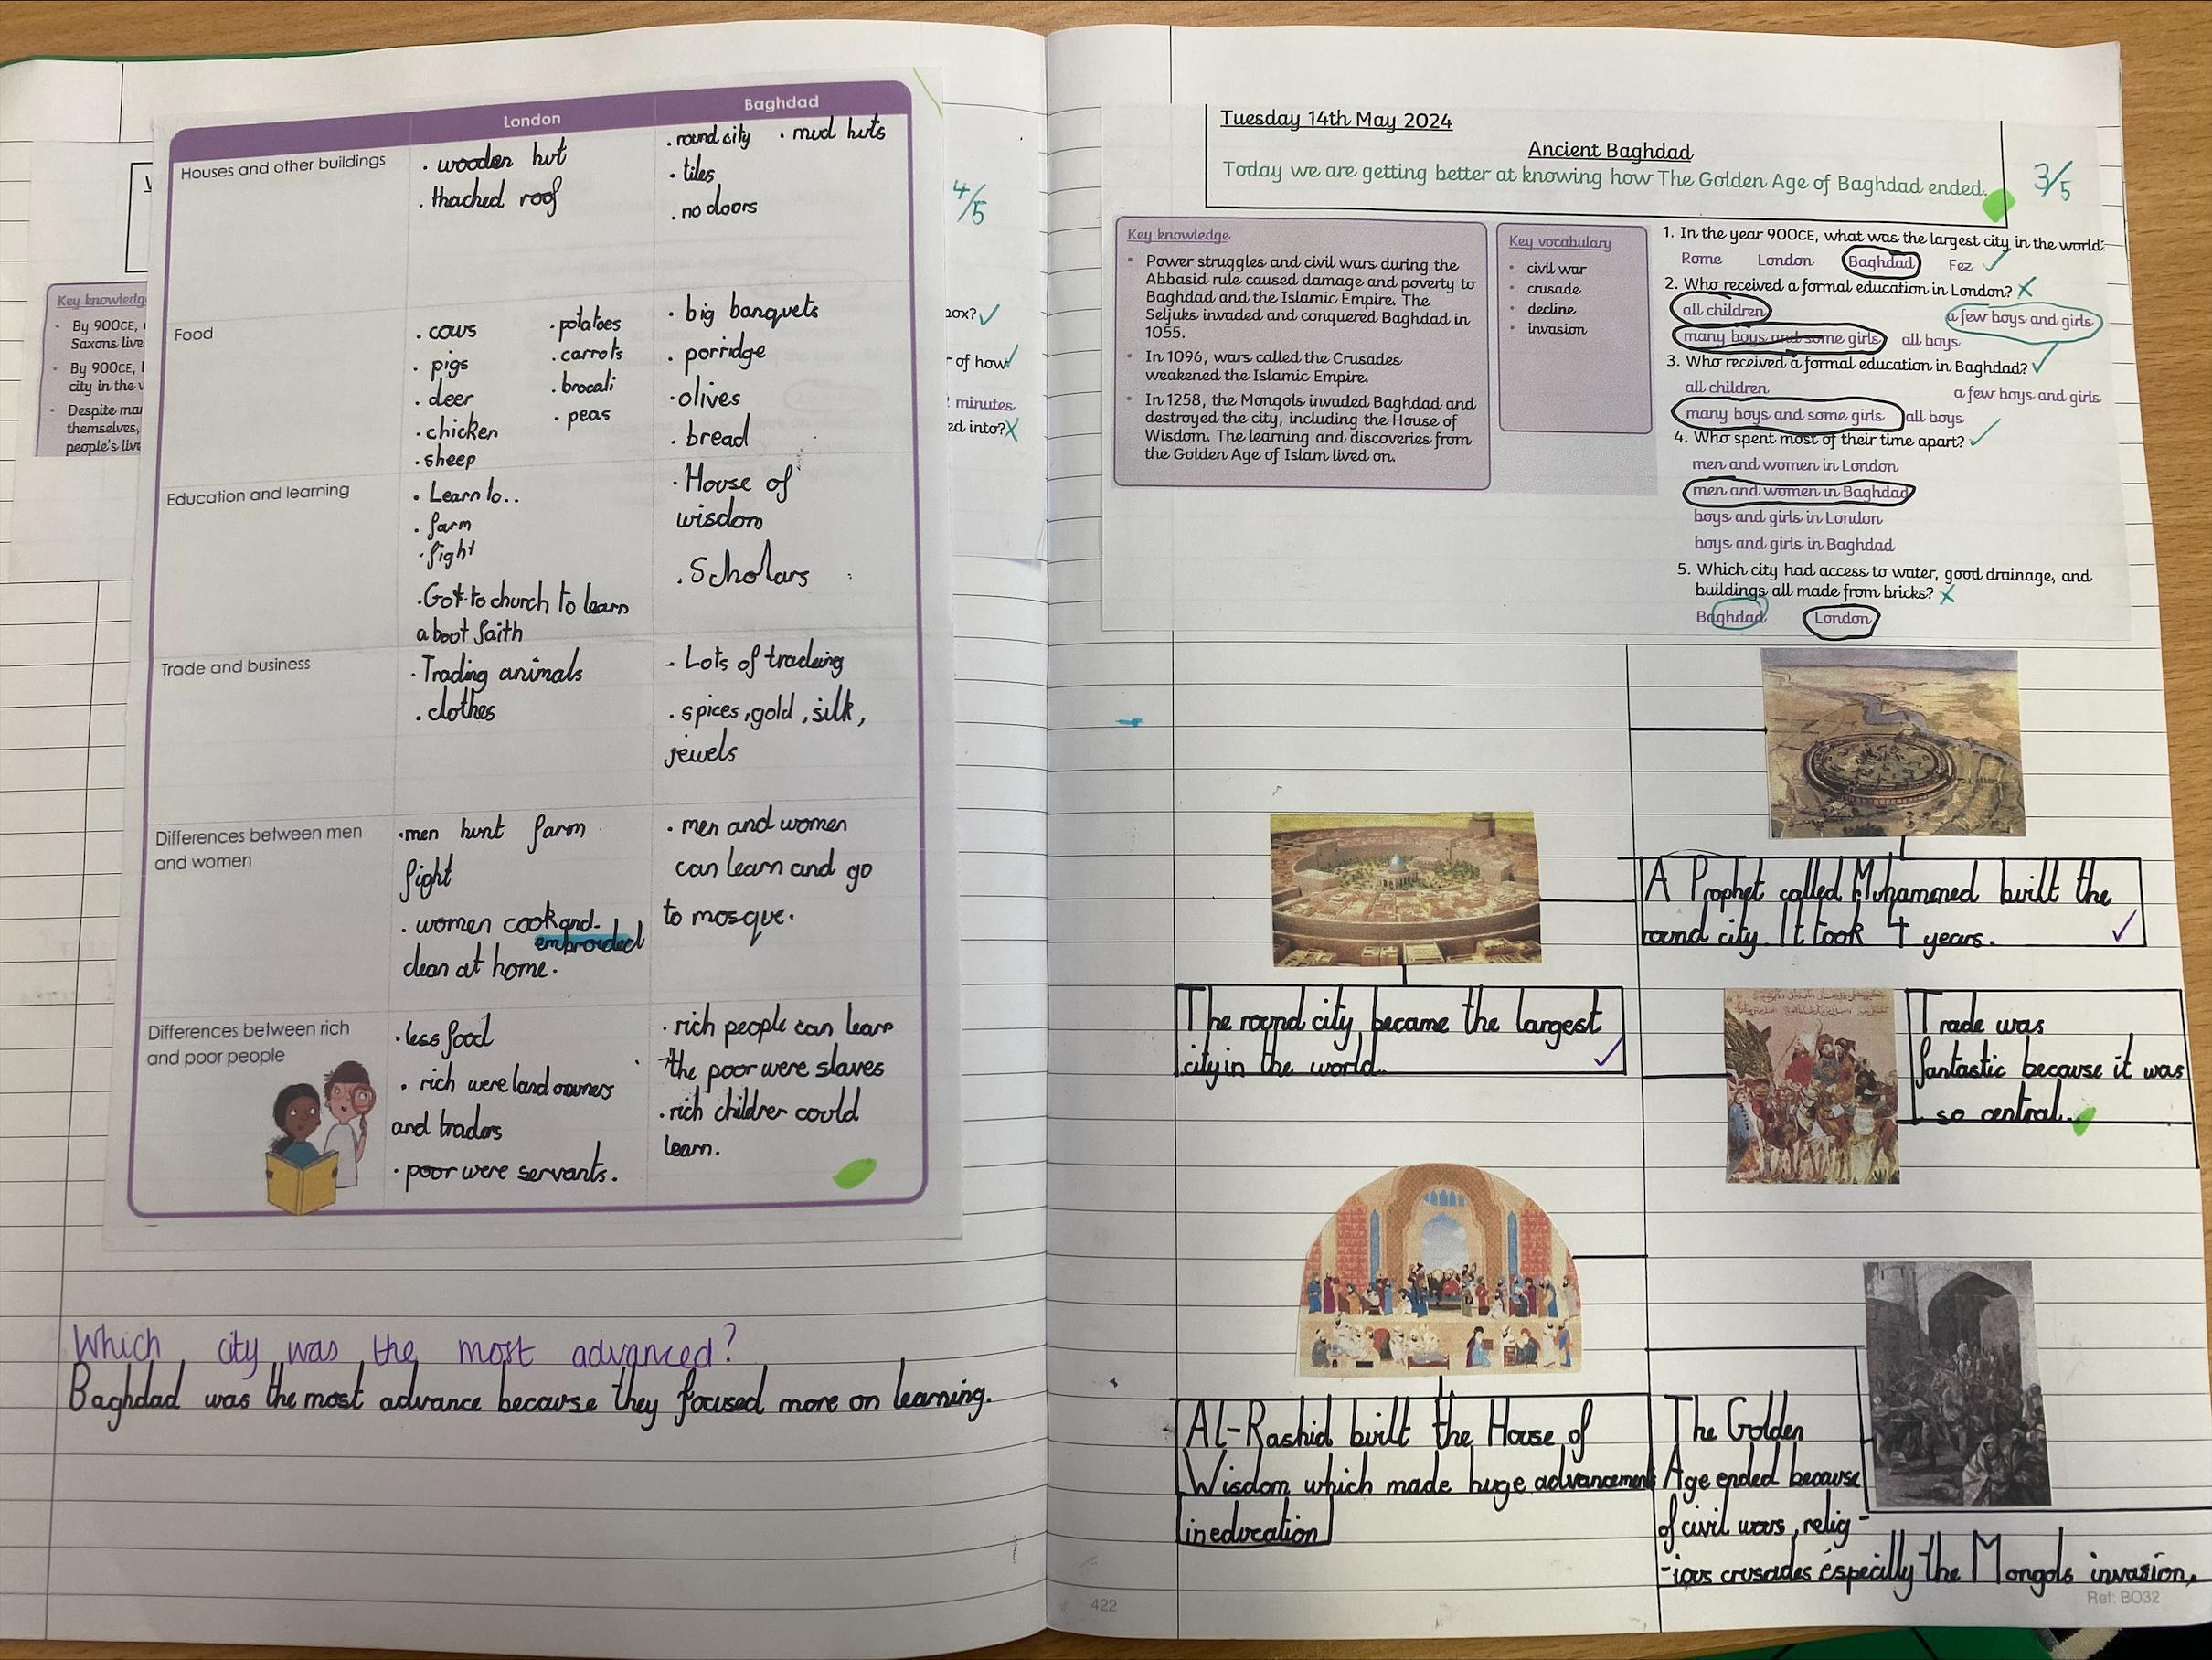 London
Baghdad
Houses and other buildings
. wooden hut
. thached roof
. round city . mud huts
. tiles
. no doors
Food
. cows
. pigs
. deer
. chicken
. sheep
. potatoes
. carrots
. brocali
. peas
. big banquets
. porridge
. olives
. bread
Education and learning
. Learn to..
. farm
. fight
. Got to church to learn
aboot faith
. House of
wisdom
. Scholars
Trade and business
. Trading animals
. clothes
- Lots of tradeing
. spices, gold, silk,
jewels
Differences between men
and women
. men hunt farm
fight
. women cook and
embroided
clean at home.
. men and women
can learn and go
to mosque.
Differences between rich
and poor people
. less food
. rich were land owners
and traders
. poor were servants.
. rich people can learn
the poor were slaves
. rich children could
learn.
4/5
Key knowledg
By 900CE,
Saxons live
By 900CE,
city in the
Despite ma
themselves,
people's liv
ox?
r of how
minutes
ed into?
Which city was the most advanced?
Baghdad was the most advance because they focused more on learning.
Tuesday 14th May 2024
Ancient Baghdad
Today we are getting better at knowing how The Golden Age of Baghdad ended.
3/5
Key knowledge
• Power struggles and civil wars during the
Abbasid rule caused damage and poverty to
Baghdad and the Islamic Empire. The
Seljuks invaded and conquered Baghdad in
1055.
• In 1096, wars called the Crusades
weakened the Islamic Empire.
• In 1258, the Mongols invaded Baghdad and
destroyed the city, including the House of
Wisdom. The learning and discoveries from
the Golden Age of Islam lived on.
Key vocabulary
• civil war
• crusade
• decline
• invasion
1. In the year 900CE, what was the largest city in the world?
Rome London Baghdad Fez
2. Who received a formal education in London?
all children a few boys and girls
many boys and some girls all boys
3. Who received a formal education in Baghdad?
all children a few boys and girls
many boys and some girls all boys
4. Who spent most of their time apart?
men and women in London
men and women in Baghdad
boys and girls in London
boys and girls in Baghdad
5. Which city had access to water, good drainage, and
buildings all made from bricks?
Baghdad London
A Prophet called Muhammed built the
round city. It took 4 years.
The round city became the largest
city in the world.
Trade was
fantastic because it was
so central.
Al-Rashid built the House of
Wisdom which made huge advancements
in education
The Golden
Age ended because
of civil wars, relig-
-ious crusades especilly the Mongols invasion.
422
Ref: BO32